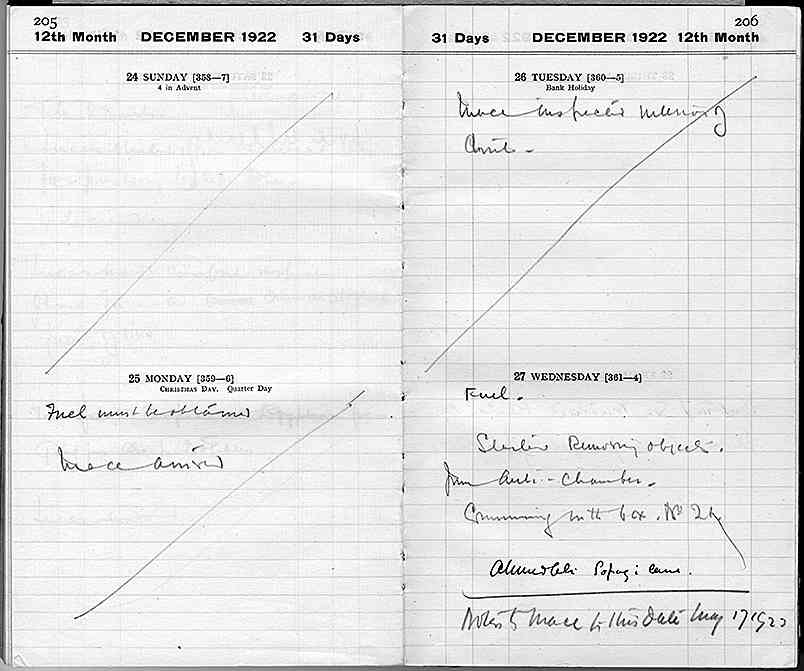 205
12th Month DECEMBER 1922 31 Days
24 SUNDAY [358—7]
4 in Advent
25 MONDAY [359—6]
CHRISTMAS DAY. Quarter Day
Fuel must be obtained
Mace arrived
206
31 Days DECEMBER 1922 12th Month
26 TUESDAY [360—5]
Bank Holiday
Mace inspected interior of
Tomb -
27 WEDNESDAY [361—4]
Fuel.
Started Removing objects.
from Anti-Chamber.
Commencing with box. No 21
came.
Notes to Mace to this date May 17 1923